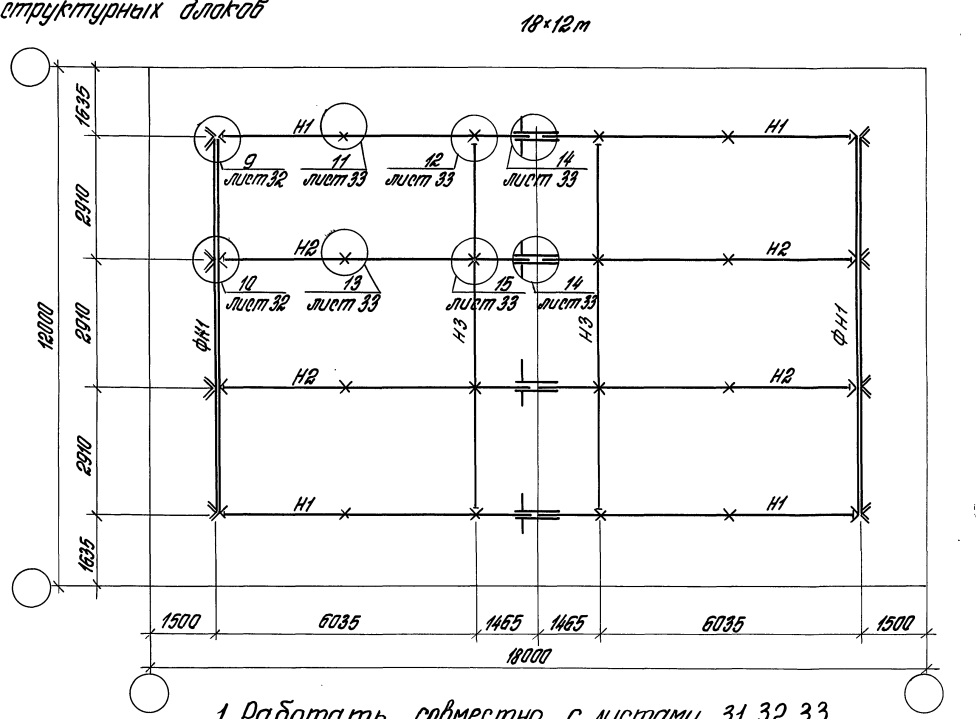 структурных блоков
18×12м
1635
2910
2910
2910
1635
12000
Н1
Н1
9
лист 32
11
лист 33
12
лист 33
14
лист 33
Н2
Н2
10
лист 32
13
лист 33
15
лист 33
14
лист 33
ФН1
Н3
Н3
ФН1
Н2
Н2
Н1
Н1
1500
6035
1465
1465
6035
1500
18000
1. Работать совместно с листами 31,32,33